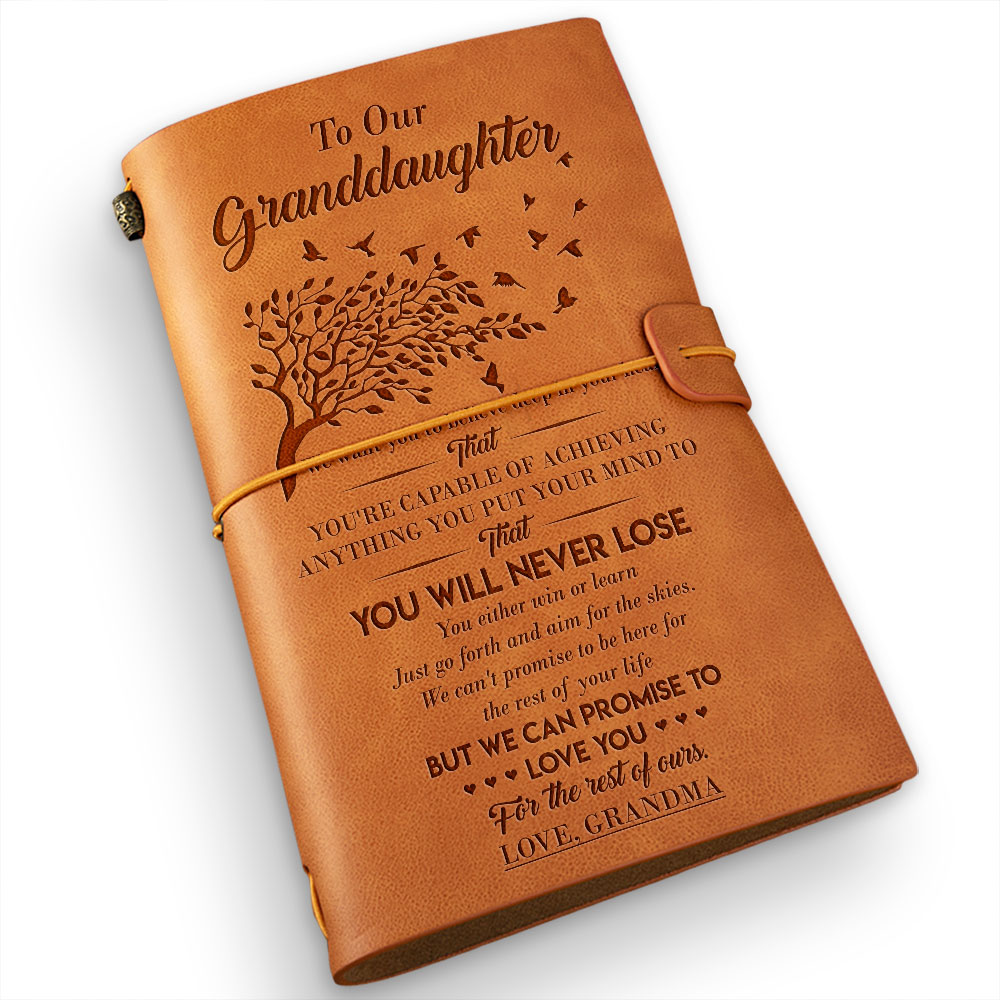 To Our
Granddaughter
we want you to believe deep in your
That
YOU'RE CAPABLE OF ACHIEVING
ANYTHING YOU PUT YOUR MIND TO
That
YOU WILL NEVER LOSE
You either win or learn
Just go forth and aim for the skies.
We can't promise to be here for
the rest of your life
BUT WE CAN PROMISE TO
LOVE YOU
For the rest of ours.
LOVE, GRANDMA